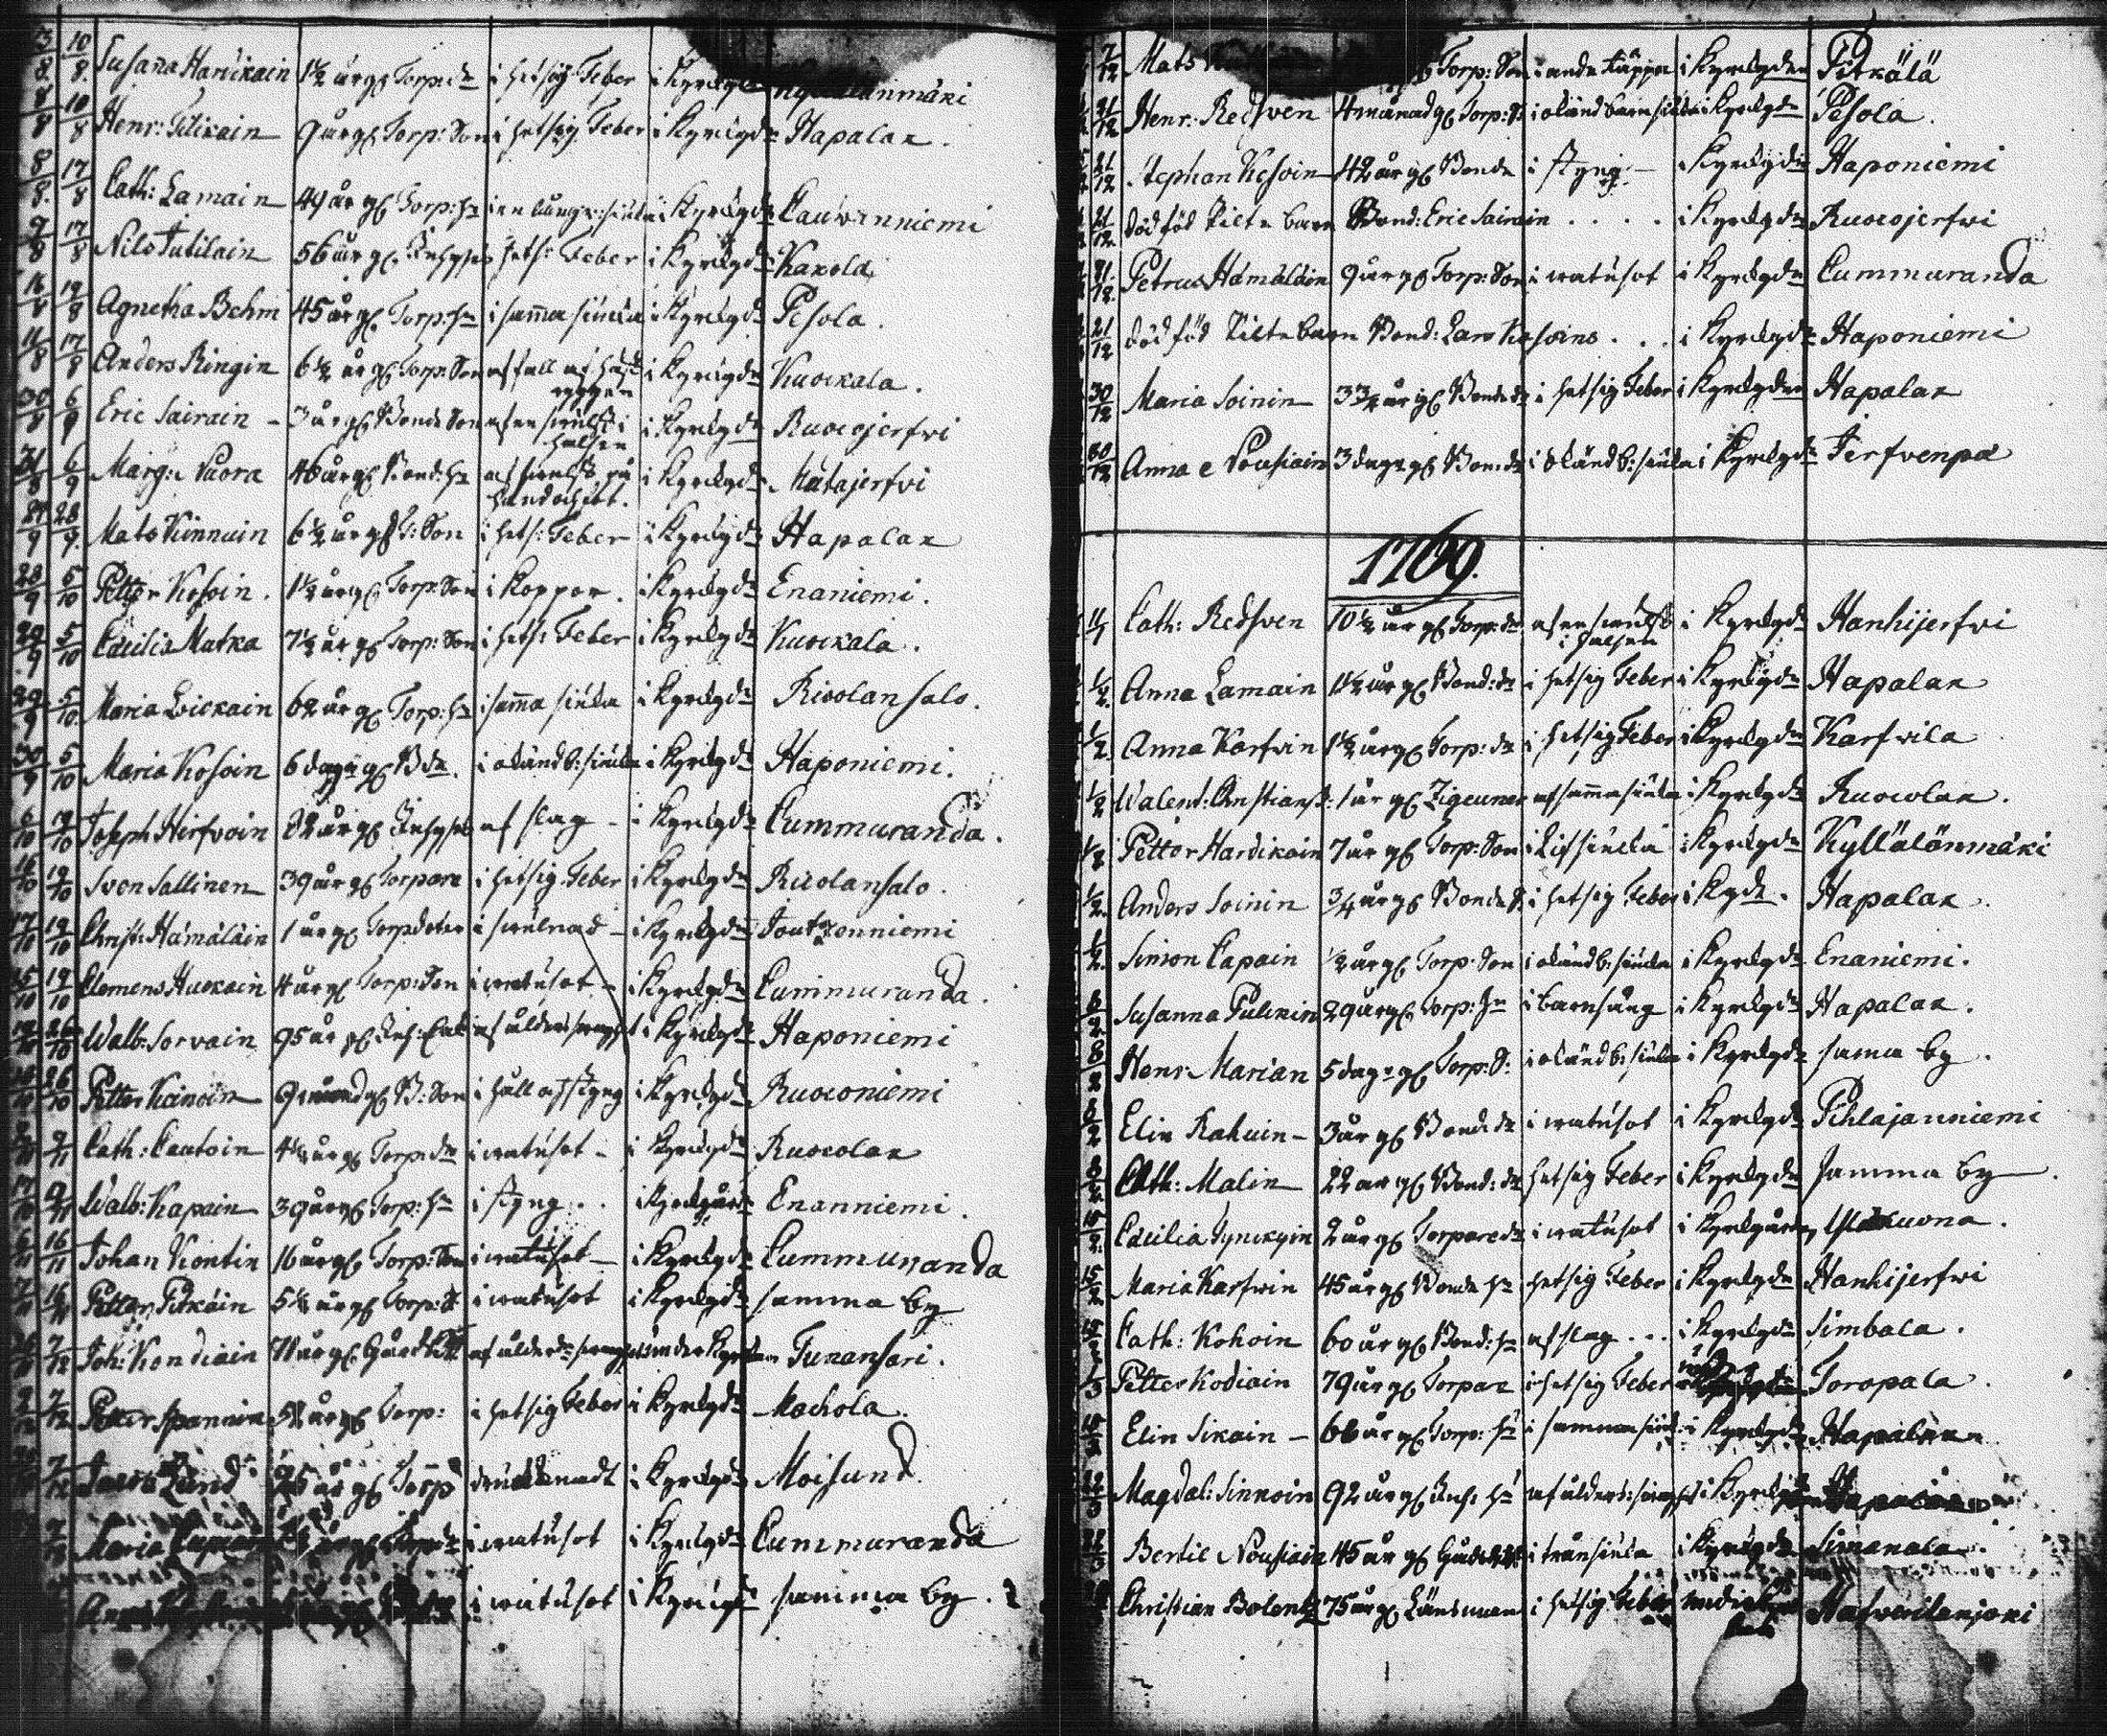 3/8 10/8 Susana Hardikain 1 1/2 år gl Torp: dr i hetsig Feber i Kyrkgdn
8/8 10/8 Henr: Tilikain 9 år gl Torp: Son i hetsig Feber i Kyrkgdn Hapalax.
8/8 17/8 Cath: Lamain 49 år gl Torp: hu i Kyrkgdn Lauvanniemi
9/8 17/8 Nils Tutilain 56 år gl Inhyses hets: Feber i Kyrkgdn Karola
16/8 19/8 Agnetha Behm 45 år gl Torp: hu i samma siuka i Kyrkgdn Pesola.
11/8 17/8 Anders Ringin 6 1/2 år gl Torp: Son af fall af häst
ryggen i Kyrkgdn Kuockala.
30/8 6/9 Eric Sairain - 3 år gl Bonde Son af en swulst i
halsen i Kyrkgdn Ruocojerfwi
31/8 6/9 Marg: Vuora 46 år gl Bond: hu af swulst på
i Kyrkgdn Mätäjerfvi
27/9 28/9 Mats Kinnuin 6 1/2 år gl T: Son i hets: Feber i Kyrkgdn Hapalax
28/9 5/10 Petter Kosoin. 1 1/2 år gl Torp: Son i koppor. i Kyrkgdn Enaniemi.
29/9 5/10 Cäcilia Matka 7 1/2 år gl Torp: Son i hets: Feber i Kyrkgdn Kuockala.
29/9 5/10 Maria Loickain 62 år gl Torp: hu i samma siuka i Kyrkgdn Ruocolan salo.
30/9 5/10 Maria Kosoin 6 dagar gl B dr. i okänd b: siuka i Kyrkgdn Haponiemi.
6/10 19/10 Joseph Hirfwoin 82 år gl Inhyses af slag - i Kyrkgdn Lummuranda.
16/10 19/10 Sven Sallinen 39 år gl Torpare i hetsig Feber i Kyrkgdn Ruocolansalo.
17/10 19/10 Christ: Hämäläin 1 år gl Torpdoter i swulnad - i Kyrkgdn Joutzenniemi
15/10 19/10 Clemens Huckain 4 år gl Torp: Son i watusot - i Kyrkgdn Lummuranda.
19/10 26/10 Walb: Sorvain 95 år gl Inh: Enk af ålders swaghet i Kyrkgdn Haponiemi
26/10 Petter Kainoin 9 månad gl B: Son i håll af styng i Kyrkgdn Ruoconiemi
9/11 Cath: Lautoin 4 1/2 år gl Torp: dr i watusot - i Kyrkgdn Ruocolax
9/11 Walb: Kapain 39 år gl Torp: hu i styng.. i Kyrkgårdn Enanniemi.
6/11 16/11 Johan Kontin 16 år gl Torp: Son i watusot - i Kyrkgdn Lummuranda
16/11 Petter Pitkäin 5 1/2 år gl Torp: S i watusot i Kyrkgdn samma by
7/12 Joh: Kondiain 71 år gl af ålders swaghet under Kyrkan Tunansari.
2/12 7/12 Petter Spannin 52 år gl Torp: i hetsig Feber i Kyrkgdn Machola.
7/12 Lund 25 år gl Torp drucknadt i Kyrkgdn Moisund.
7/12 Maria i watusot i Kyrkgdn Lummuranda
i watusot i Kyrkgdn samma by.
7/12 Mats Torp: Son i anda täppa i Kyrkgdn Pitkälä
21/12 Henr: Redsven 4 månad gl Torp: S: i okänd barnsiuka i Kyrkgdn Pesola.
21/12 Stephan Kosoin 42 år gl Bonde i styng - Kyrkgdn Haponiemi
21/12 död föd Pilte barn Bond: Eric Sairain.... i Kyrkgdn Ruocojerfwi
21/12 Petrus Hämäläin 9 år gl Torp: Son i watusot i Kyrkgdn Lummuranda
21/12 död föd Pilte barn Bond: Lars Kosoins... i Kyrkgdn Haponiemi
30/12 Maria Soinin 3 3/4 år gl Bonde dr i hetsig Feber i Kyrkgdn Hapalax
30/12 Anna e Nousiain 3 dagr gl Bon: dr i okänd b: siuka i Kyrkgdn Jerfvenpä
1769.
11/1 Cath: Redsven 10 1/2 år gl Torp: dr af en swulst
i halsen i Kyrkgdn Hanhijerfwi
1/2 Anna Lamain 1 1/2 år gl Bond: dr i hetsig Feber i Kyrkgdn Hapalax
1/2 Anna Karfvin 1 1/2 år gl Torp: dr i hetsig Feber i Kyrkgdn Karfwila
1/2 Walent: Christians: 1 år gl Zigeuner af samma siuka i Kyrkgdn Ruocolax.
1/2 Petter Hardikain 7 år gl Torp: Son i Kyrkgdn Kyllälänmäki
1/2 Anders Soinin 3/4 år gl Bonde S: i hetsig Feber i Kgdn. Hapalax.
1/2 Simon Lapain 1/2 år gl Torp: Son i okänd b: siuka i Kyrkgdn Enaniemi.
6/2 Susanna Pulckin 29 år gl Torp: hu i barnsäng i Kyrkgdn Hapalax.
8/2 Henr: Marian 5 dagr gl Torp: S: i okänd b: siuka i Kyrkgdn sama by.
8/2 Elin Rahuin - 3 år gl Bonde dr i watusot i Kyrkgdn Pihlajanniemi
8/2 Cath: Malin 22 år gl Bond: dr hetsig Feber i Kyrkgdn samma by.
15/2 Cäcilia Tynckyin 2 år gl Torpare dr i watusot i Kyrkgården
15/2 Maria Karfwin 45 år gl Bonde hu hetsig Feber i Kyrkgdn Hanhijerfwi
15/2 Cath: Kohoin 60 år gl Bond: hu af slag... i Kyrkgdn Simbala.
1/3 Petter Kodiain 79 år gl Torpar i hetsig Feber Toropala.
Elin Sikain - 66 år gl Torp: hu i samma siuk: i Kyrkgdn Hapalax
12/3 Magdal: Sinnoin 92 år gl Inh: hu af ålders: swaghet i Kyrkgdn Hapalax
22/3 Bertil Nousiain 45 år gl i tränsiuka i Kyrkgdn Simanala.
Christian Bolentz 75 år gl Länsman i hetsig Feber Hatvoilanjoki